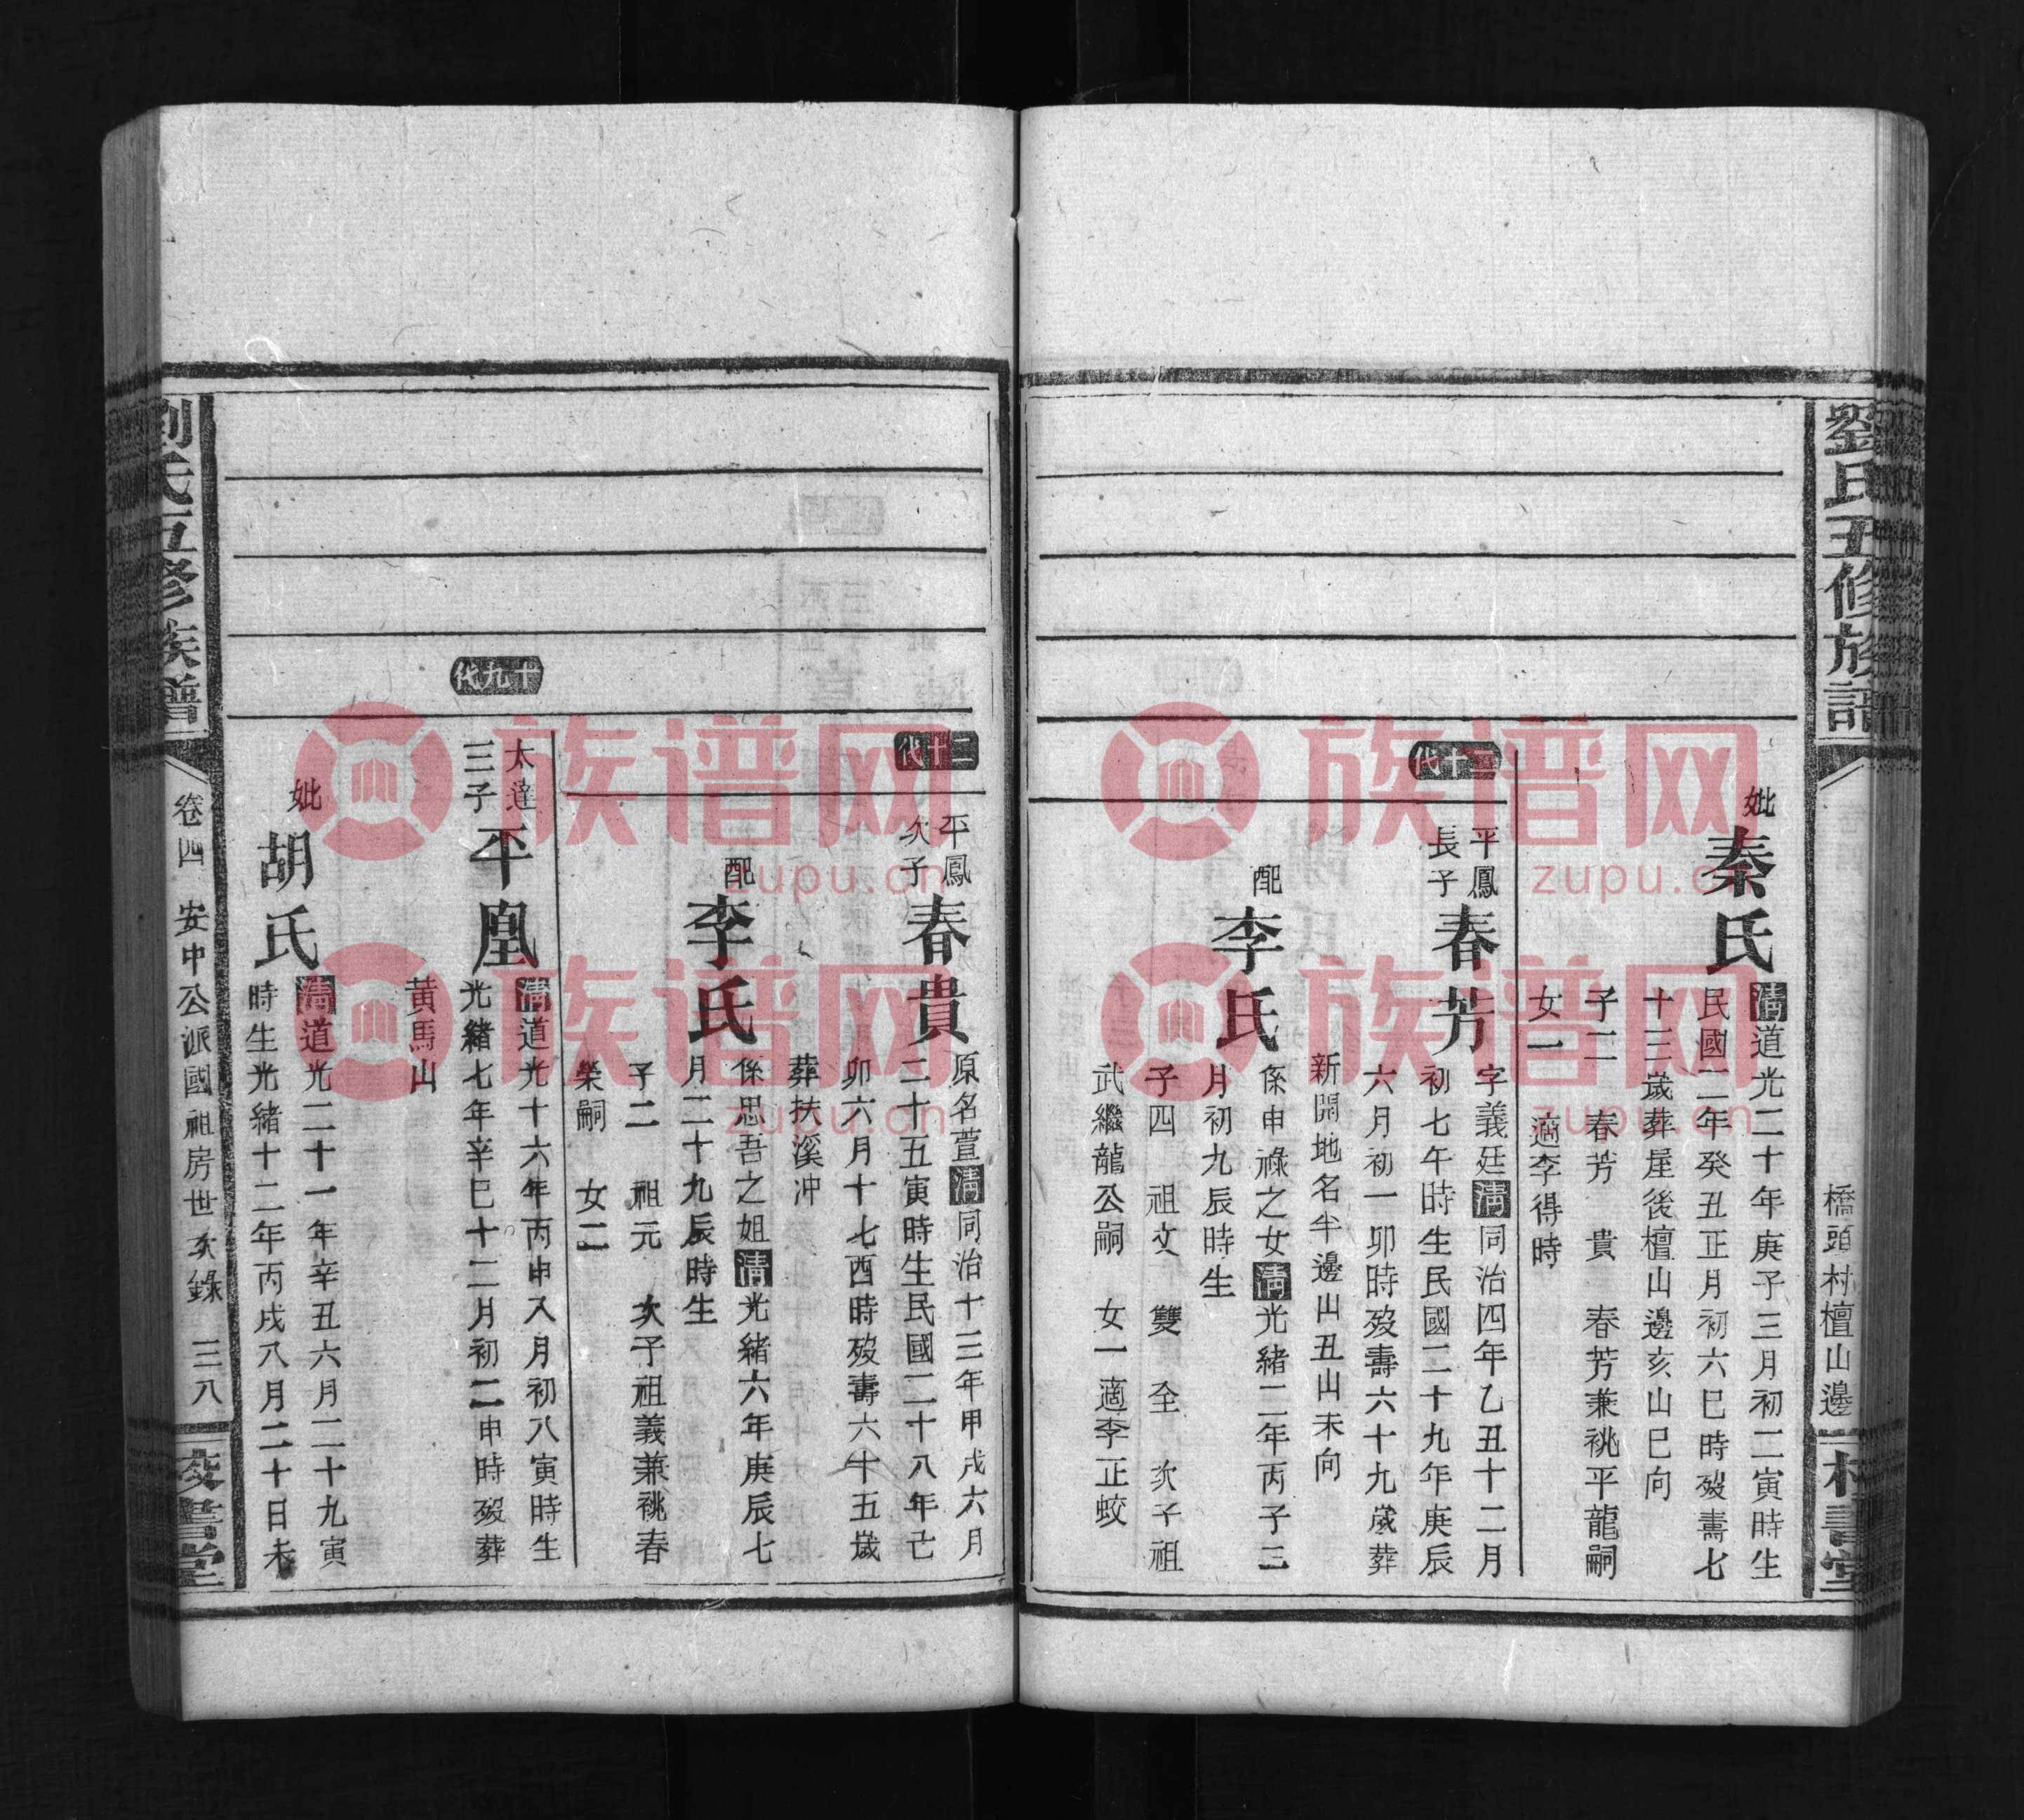 劉氏五修族譜
橋頭村檀山邊
妣
秦氏
清道光二十年庚子三月初二寅時生
民國二年癸丑正月初六巳時歿壽七
十三歲葬屋後檀山邊亥山巳向
子二 春芳 貴 春芳兼祧平龍嗣
女一 適李得時
二十代
平鳳
長子
春芳
字義廷清同治四年乙丑十二月
初七午時生民國二十九年庚辰
六月初一卯時歿壽六十九歲葬
新開地名半邊山丑山未向
配
李氏
係申祿之女清光緒二年丙子三
月初九辰時生
子四 祖文 雙 全 次子祖
武繼龍公嗣 女一適李正蛟
二十代
平鳳
次子
春貴
原名萱清同治十三年甲戌六月
二十五寅時生民國二十八年己
卯六月十七酉時歿壽六十五歲
葬扶溪冲
配
李氏
係思吾之姐清光緒六年庚辰七
月二十九辰時生
子二 祖元 次子祖義兼祧春
榮嗣 女二
十九代
太達
三子
平凰
清道光十六年丙申八月初八寅時生
光緒七年辛巳十二月初二申時歿葬
黃馬山
妣
胡氏
清道光二十一年辛丑六月二十九寅
時生光緒十二年丙戌八月二十日未
劉氏五修族譜
卷四 安中公派國祖房世次錄 三八
族谱网
zupu.cn
族谱网
zupu.cn
族谱网
zupu.cn
族谱网
zupu.cn